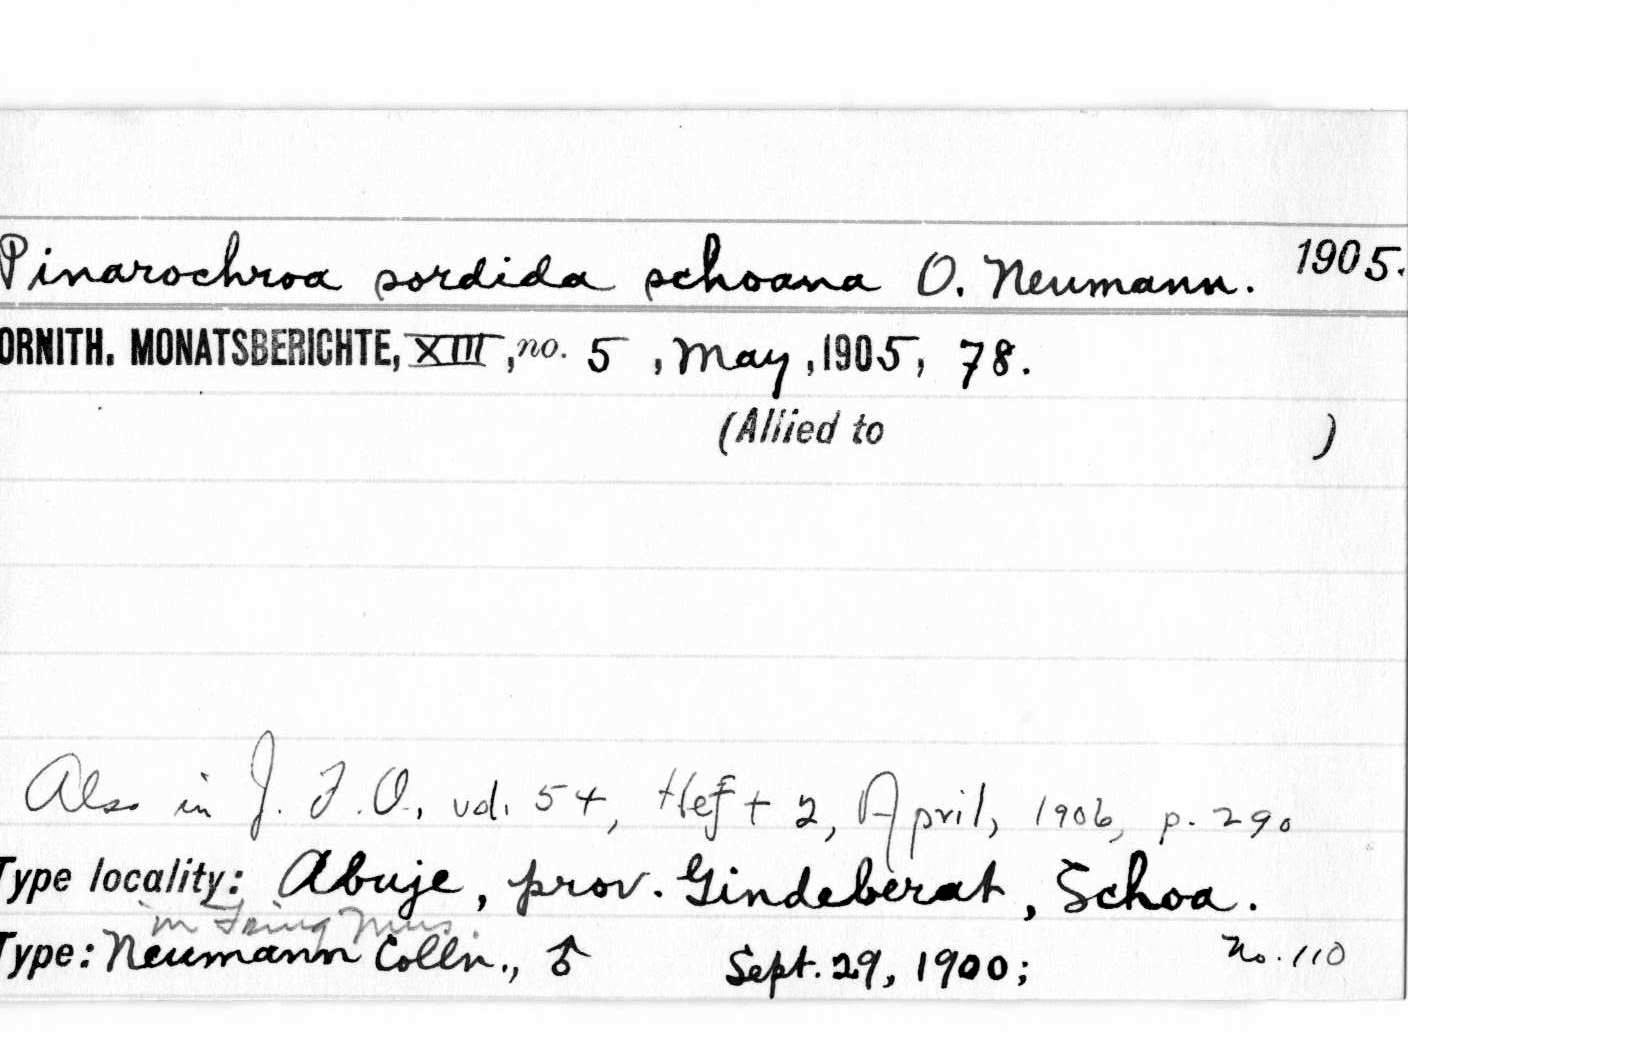 Pinarochroa sordida schoana O. Neumann. 1905.
ORNITH. MONATSBERICHTE, XIII, no. 5, May, 1905, 78.
(Allied to )
Also in J. F. O., vol. 54, Heft 2, April, 1906, p. 290
Type locality: Abuje, prov. Gindeberat, Schoa.
in Tring Mus.
Type: Neumann Colln., ♂ Sept. 29, 1900; No. 110